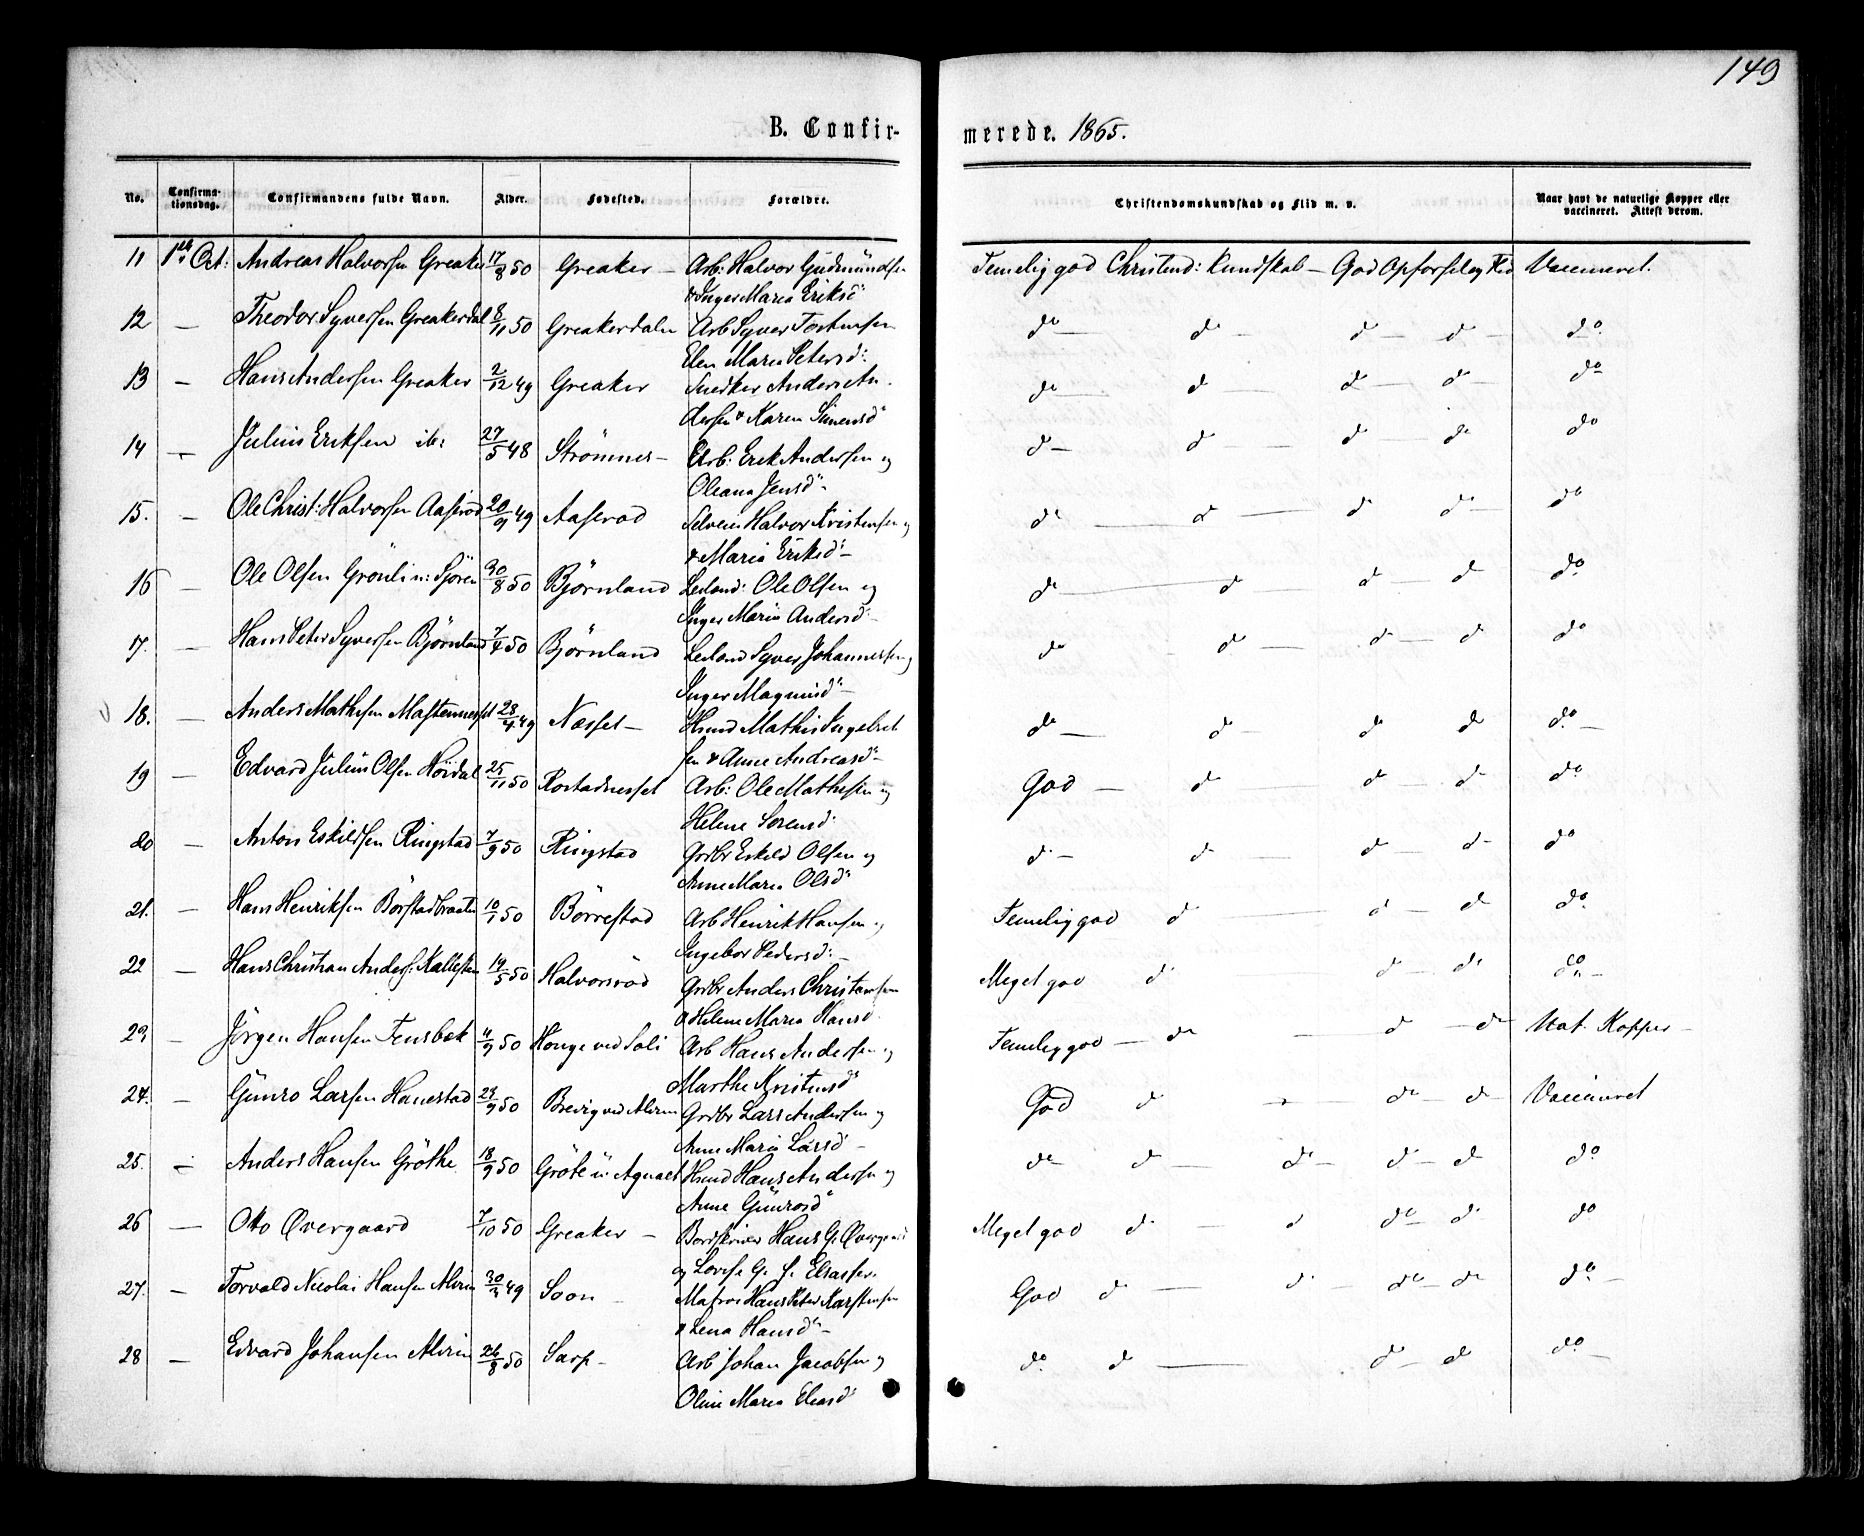 149
B. Confirmerede. 1865.
No. Confirmationsdag. Confirmandens fulde Navn. Alder. Fødested. Forældre. Christendomskundskab og Flid m. v. Naar havt de naturlige Kopper eller vaccineret. Attest derom.
11 1ste Oct: Andreas Halvorsen Greaker 17/8 50 Greaker — Arb: Halvor Gudmundsen Temelig god Christend: Kundskab — God Opførsel og Flid Vaccineret.
& Inger Maria Eriksd
12 — Theodor Syversen Greakerdal 8/11 50 Greakerdalen Arb Syver Torstensen do — do — do — do — do
Elen Maria Petersd:
13 — Hans Andersen Greaker 2/12 49 Greaker Snedker Anders An- do do — do — do — do
dersen & Karen Simensd
14 — Julius Eriksen ib: 27/5 48 Strömnes — Arb: Erik Andersen og do — do — do — do do
Oleana Jensd —
15. — Ole Christ: Halvorsen Aaserød 20/9 49 Aaserød Selveier Halvor Kristensen og do — do — do do — do
& Maria Eriksd —
16 — Ole Olsen Grönli 30/8 50 Björnland Leiland: Ole Olsen og do — do do do do
Inger Maria Andersd
17. — Hans Peter Syversen Björnland 7/4 50 Björnland Leiland Syver Johannesen og do do — do — do do
Inger Magnusd —
18. — Anders Mathisen 23/4 49 Næsset — Husmd Mathis Ingebret- do — do — do do do —
sen & Anne Andreasd —
19 — Edvard Julius Olsen Höidal 25/11 50 Rostadnesset Arb: Ole Mathisen og God — do — do — do do
Helene Sorensd.
20 — Anton Eskildsen Ringstad 7/9 50 Ringstad Grdbr Eskild Olsen og do — do — do — do — do
Anne Maria Olsd
21. — Hans Henriksen Börstadbraaten 10/1 50 Börrestad Arb Henrik Hansen og Temelig god do — do — do do
Ingebor Pedersd: —
22 — Hans Christian Anders: Kallesten 19/5 50 Halvorsröd Grdbr Anders Christensen Meget god do do — do do —
& Helene Maria Hansd.
23 — Jörgen Hansen Tensbek 4/9 50 Houge ved Soli Arb Hans Andersen og Temelig god — do — do — do Nat. Kopper —
Marthe Kristensd
24. — Gunro Larsen Hanestad 23/9 50 Brevig ved Alvim Grdbr Lars Andersen og God do — do — do — Vaccineret
Anne Maria Larsd —
25. — Anders Hansen Gröthe 18/9 50 Husmd Hans Andersen og do do — do — do — do do
Anne Gunrosd
26 — Otto Øvergaard 7/10 50 Greaker — Bordskriver Hans G. Øvergaard Meget god do — do do — do do
og Lovise G. f. Elsasser.
27. — Torvald Nicolai Hansen Alvim 30/3 49 Soon — Matros Hans Peter Karstensen God do — do — do — do do —
& Lena Hansd —
28 — Edvard Johansen Alvim 26/8 50 Sarp — Arb Johan Jacobsen og do. do — do — do do —
Oline Maria Eliasd